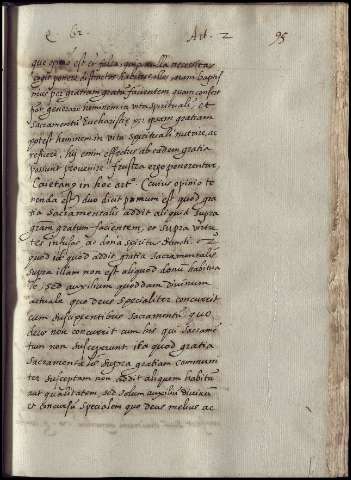 Q. 62. Art. 2 95
que opinio est falsa, quia nulla necessitas
cogit ponere distinctos habitus nam baptis
mus per gratiam gratum facientem quam confert
pot generare hominem in vita spirituali et
sacramentũ Eucharistię per ipsam gratiam
potest hominem in vita spirituali nutrire, ac
reficere, hij enim effectus ab eadem gratia
possunt provenire frustra ergo ponerentur
Caietanꝯ in hoc artº. (cuius opinio te
nenda est) duo dicit primum est quod gra
tia sacramentalis addit aliquid supra
gratiam gratum facientem, et supra virtu
tes infusas ac dona spiritus sancti. 2º
quod id quod addit gratia sacramentalis
supra illam non est aliquod donũ habitua
le, sed auxilium quoddam divinum
actuale quo deus specialiter concurrit
cum suscipientibus sacramentũ quo
deus non concurrit cum his qui sacramẽ
tum non susceperunt. ita quod gratia
sacramentalis supra gratiam communi
ter susceptam non addit aliquem habitũ
aut qualitatem sed solum auxiliũ divinũ
et concursũ specialem quo deus melius ac